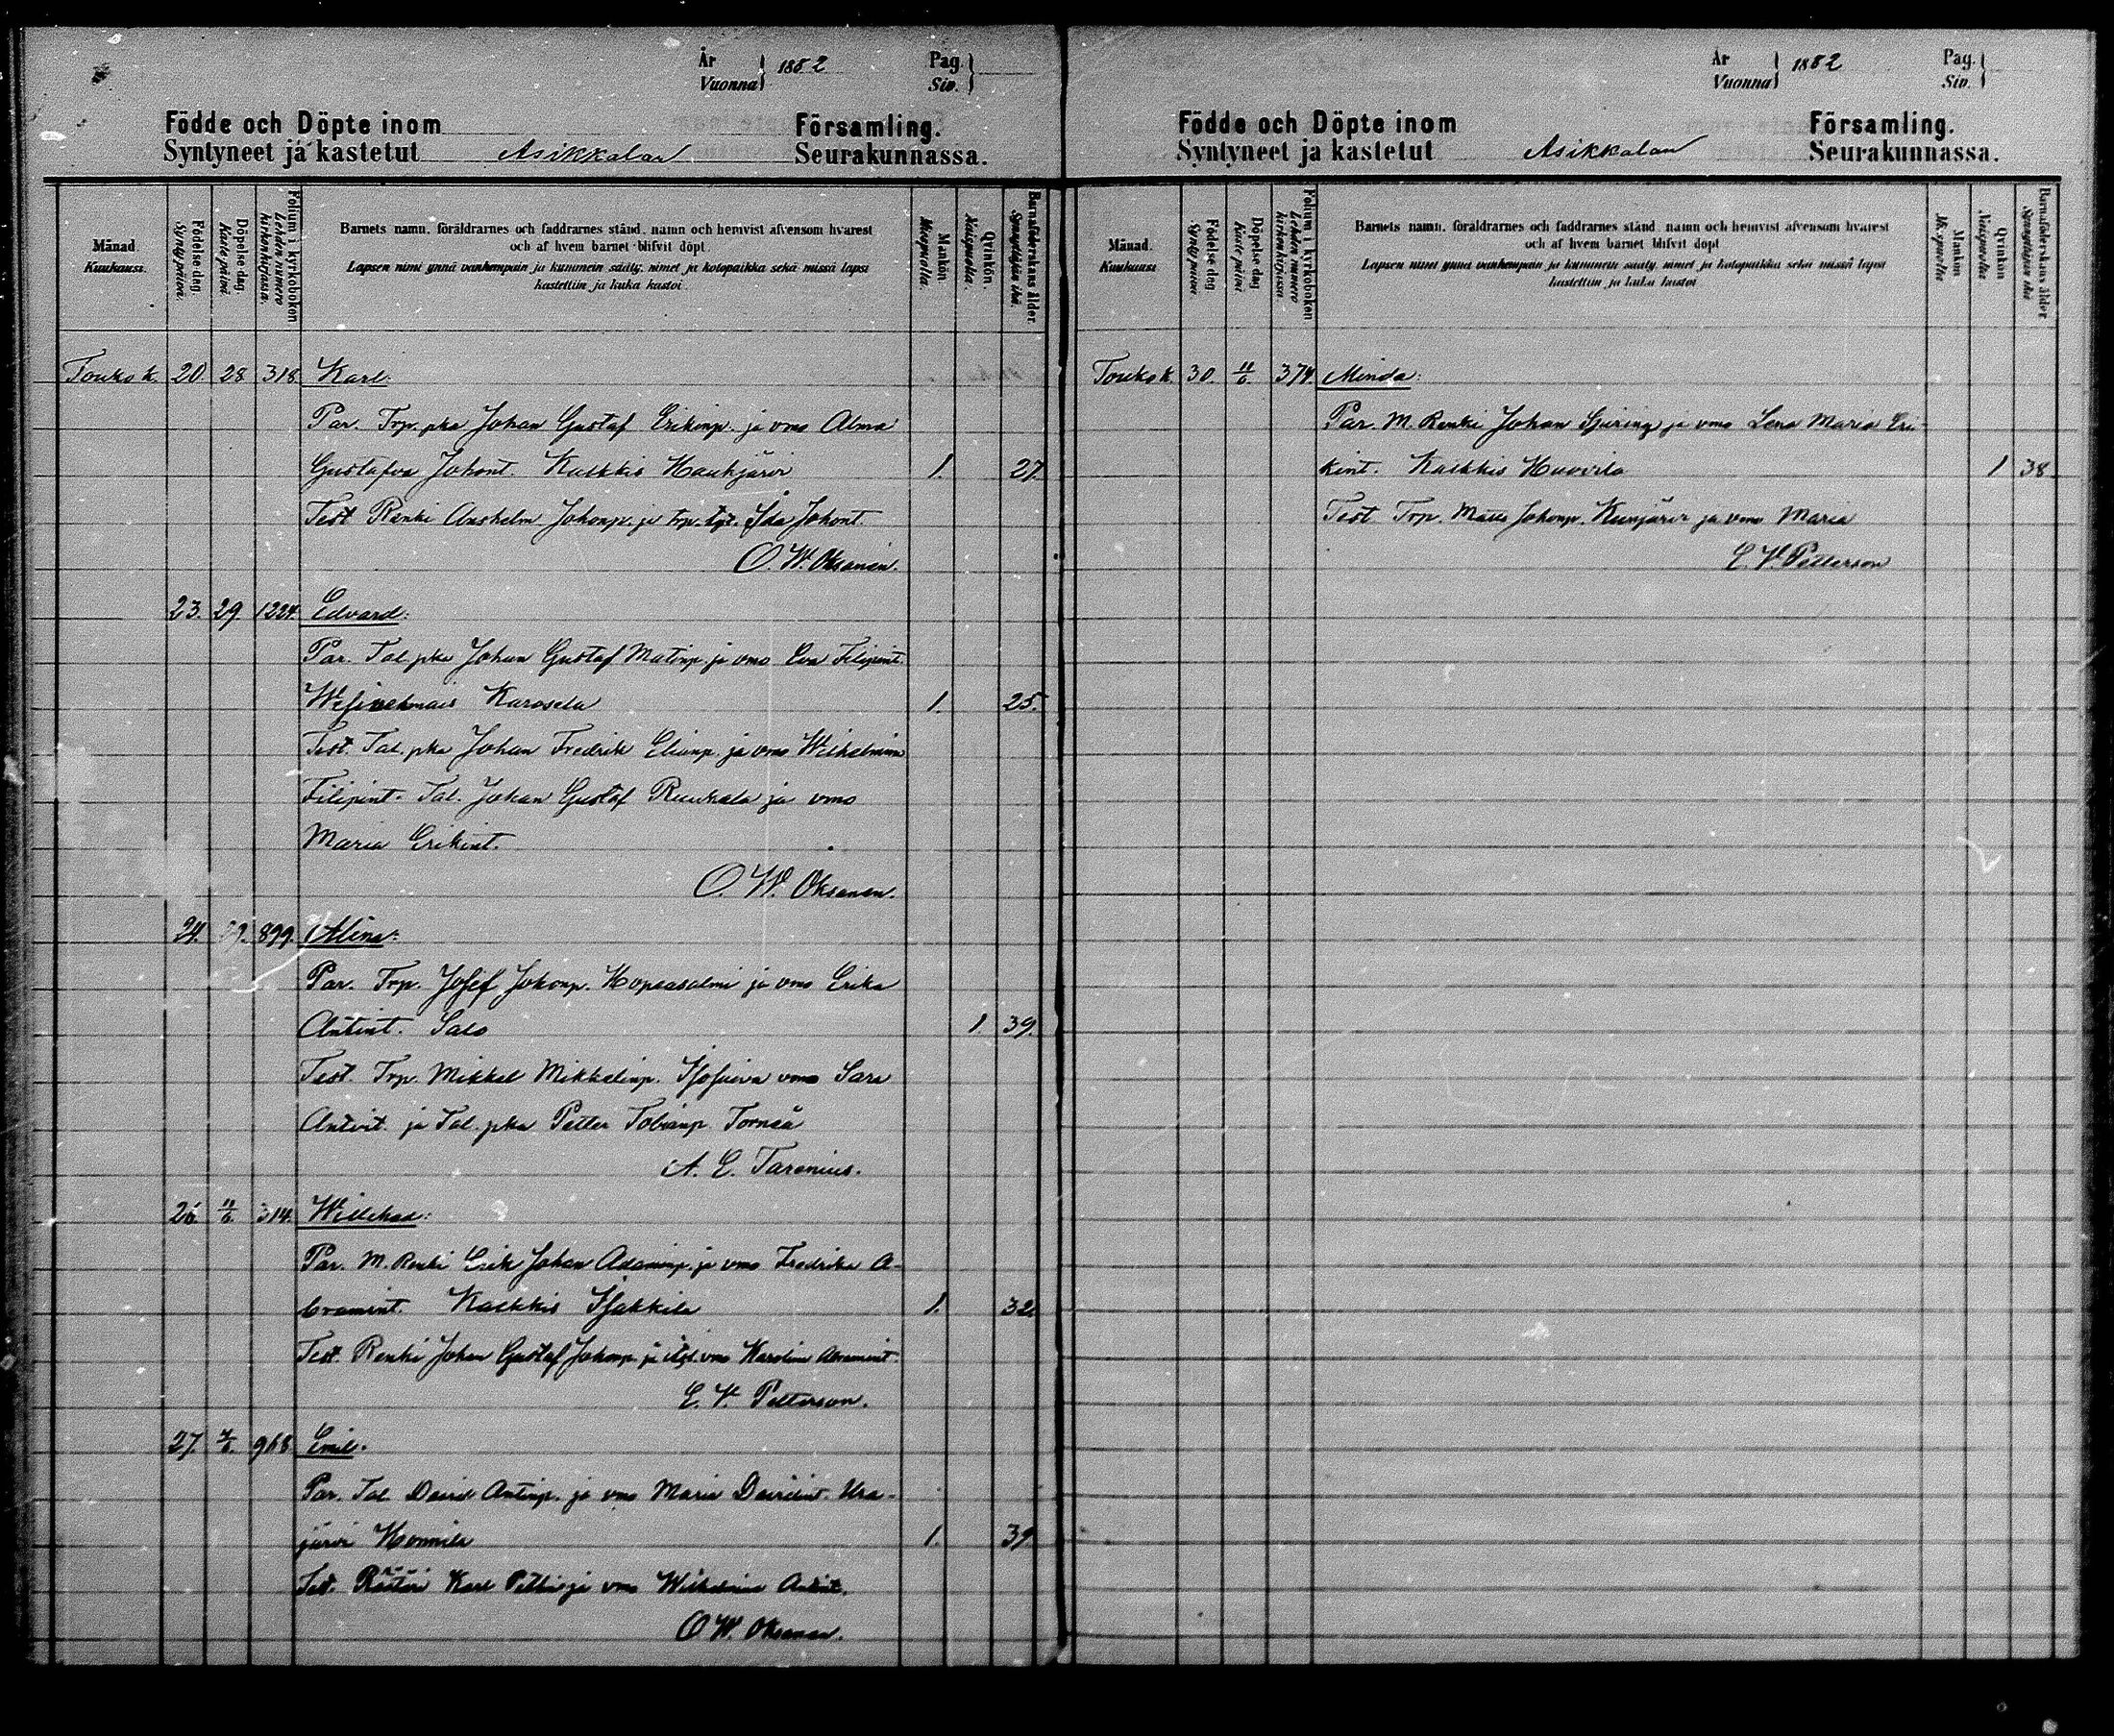 År
Vuonna 1882 Pag.
Siv.
Födde och Döpte inom Församling.
Syntyneet ja kastetut Asikkalan Seurakunnassa.
Månad. Kuukausi. Födelse dag. Syntypäivä. Döpelse dag. Kaste päivä. Folium i kyrkoboken Lehden numero kirkonkirjassa. Barnets namn, föräldrarnes och faddrarnes stånd, namn och hemvist äfvensom hvarest
och af hvem barnet blifvit döpt.
Lapsen nimi ynnä vanhempain ja kummein sääty, nimet ja kotopaikka sekä missä lapsi
kastettiin ja kuka kastoi.
Mankön. Miespuolia. Qvinkön. Naispuolia. Barnaföderskans ålder. Synnyttäjän ikä.
Toukok. 20. 28 318 Karl:
Par. Trp. pka Johan Gustaf Erikinp. ja vmo Alma
Gustafva Johont. Kalkkis Hauhjärvi 1. 27.
Test Renki Anshelm Johonp. ja trp. tyt. Ida Johont.
O. W. Oksanen.
23. 29. 1224. Edvard:
Par. Tal. pka Johan Gustaf Matinp. ja vmo Eva Filipint.
Wesivehmais Karosela 1. 25.
Test. Tal. pka Johan Fredrik Elianp. ja vmo Wilhelmina
Filipint. Tal. Johan Gustaf Ruuhala ja vmo
Maria Erikint.
O. W. Oksanen.
24. 29. 899. Alina:
Par. Trp. Josef Johonp. Hopeasalmi ja vmo Erika
Antint. Salo 1. 39.
Test. Trp. Mikkel Mikkelinp. vmo Sara
Antint. ja Tal. pka Petter Tobianp. Tornaä
A. E. Tarenius.
26. 11/6. 314. Willehad:
Par. M. Renki Erik Johan Adaminp. ja vmo Fredrika A-
bramint. Kalkkis 1. 32.
Test. Renki Johan Gustaf Johonp. ja itgl. vmo Karolina Abramint.
E. V. Petterson.
27. 4/6. 968 Emil.
Par. Tal. David Antinp. ja vmo Maria Davidint. Ura-
järvi Honnila 1. 39
Test. Räätäri Karl ja vmo Wilhelmina Antint.
O W. Oksanen.
År
Vuonna 1882 Pag.
Siv.
Födde och Döpte inom Församling.
Syntyneet ja kastetut Asikkalan Seurakunnassa.
Månad. Kuukausi Födelse dag Syntypäivä Döpelse dag Kaste päivä Folium i kyrkoboken Lehden numero kirkonkirjassa Barnets namn, föräldrarnes och faddrarnes stånd, namn och hemvist äfvensom hvarest
och af hvem barnet blifvit döpt
Lapsen nimi ynnä vanhempain ja kummein sääty, nimet ja kotopaikka sekä missä lapsi
kastettiin ja kuka kastoi
Mankön Miespuolia Qvinkön Naispuolia Barnaföderskans ålder Synnyttäjän ikä
Toukok. 30. 11/6. 374. Minda:
Par. M. Renki Johan Sjöring ja vmo Lena Maria Eri-
kint. Kalkkis Huovila 1 38.
Test Trp. Matts Johonp. ja vmo Maria
E. V. Petterson